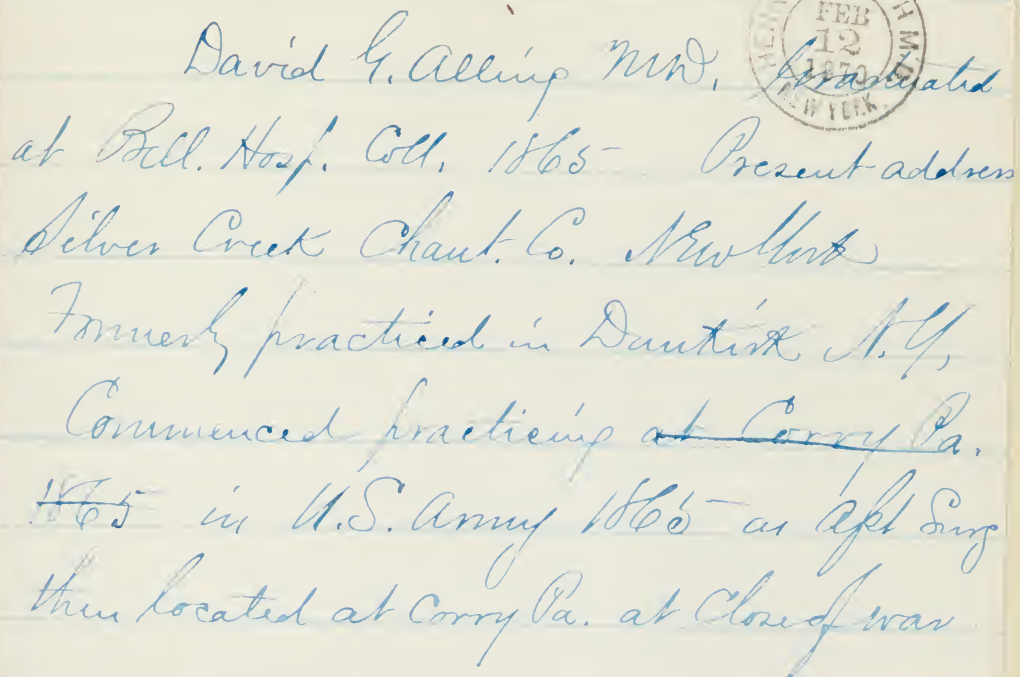 FEB
12
1870
NEW YORK.
David G. Alling M.D. Graduated
at Bell. Hosp. Coll. 1865 Present address
Silver Creek Chaut. Co. New York
Formerly practiced in Dunkirk N.Y.
Commenced practicing at Corry Pa.
1865 in U.S. Army 1865 as Asst Surg
then located at Corry Pa. at Close of war